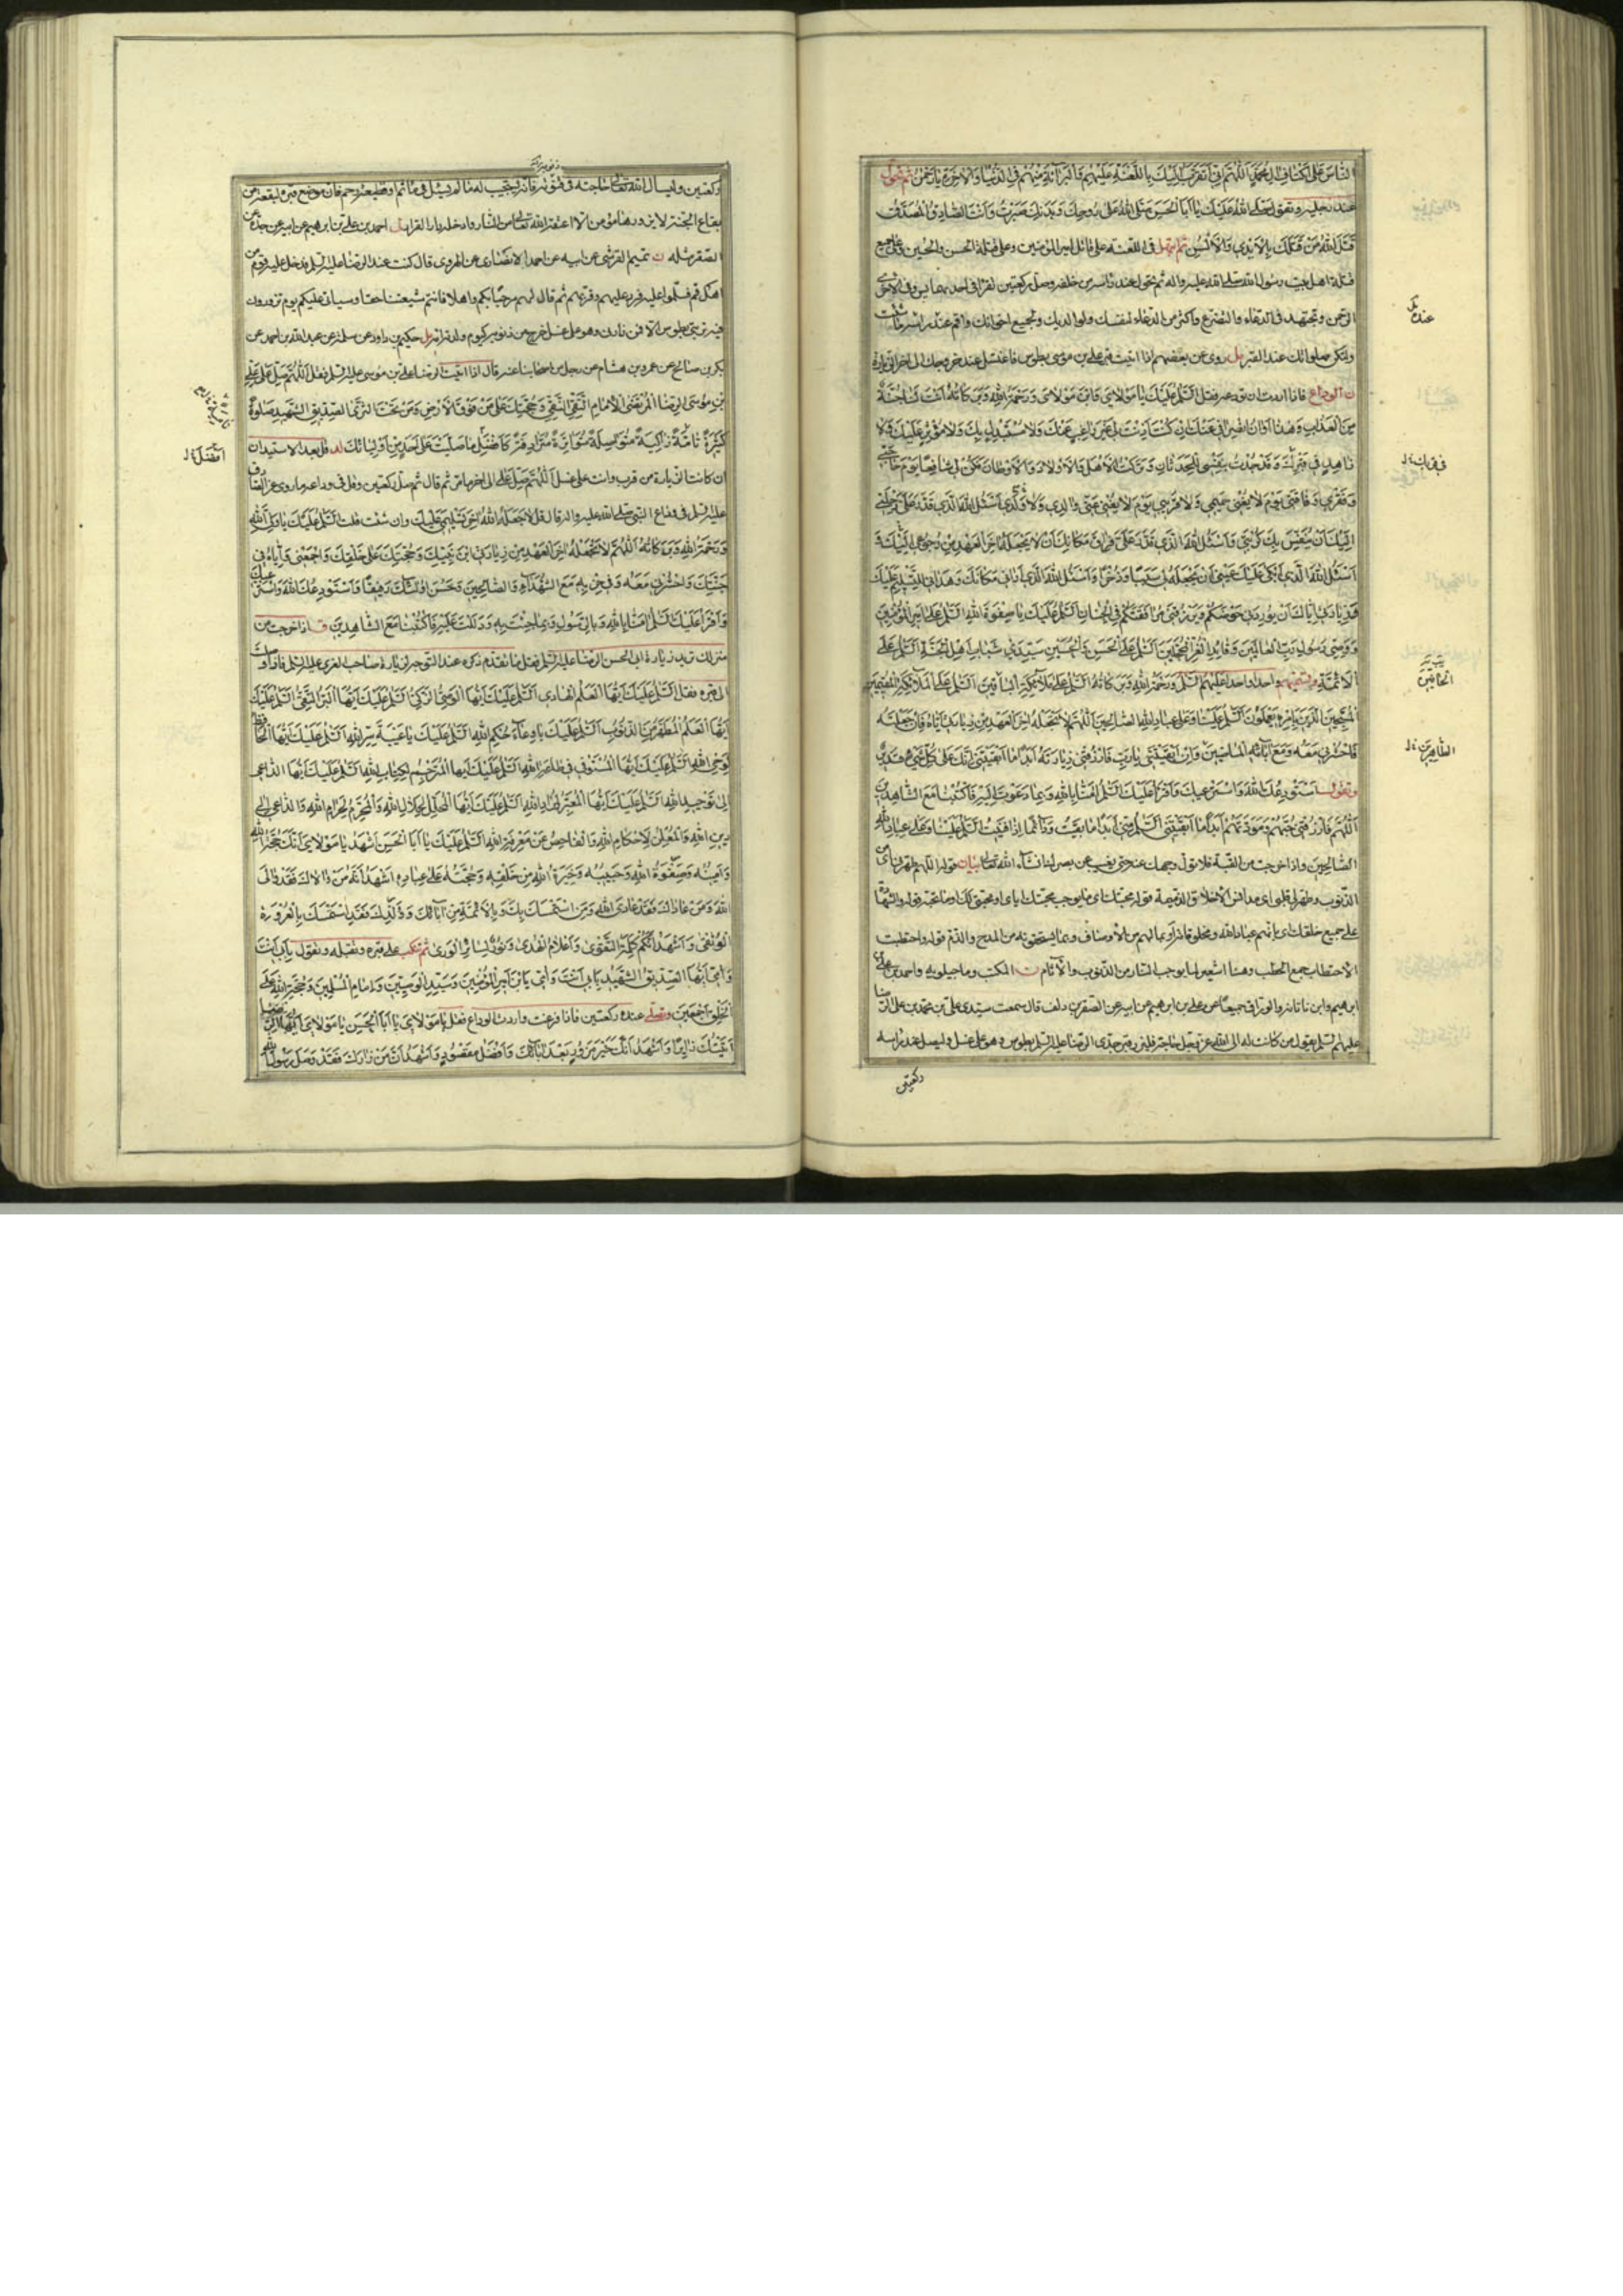 الناس على اكتاف ال محمد اللهم اني اتقرب اليك باللعنة عليهم والبرائة منهم في الدنيا والاخرة يا رحمن ثم تحول
عند رجليه وتقول صلى الله عليك يا ابا الحسن صلى الله على روحك وبدنك صبرت وانت الصادق المصدق
قتل الله من قتلك بالايدي والالسن ثم ابتهل في اللعنة على قاتل امير المؤمنين وعلى قتلة الحسن والحسين وعلى جميع
قتلة اهل بيت رسول الله صلى الله عليه واله ثم تحول عند راسه من خلفه وصل ركعتين تقرا في احديهما يس وفي الاخرى
الرحمن وتجتهد في الدعاء والتضرع واكثر من الدعاء لنفسك ولوالديك ولجميع اخوانك واقم عند راسه ما شئت
ولتكن صلواتك عند القبر مل روي عن بعضهم اذا اتيت قبر علي بن موسى بطوس فاغتسل عند خروجك الى اخر الزيارة
ن الوداع فاذا اردت ان تودعه فقل السلم عليك يا مولاي وابن مولاي ورحمة الله وبركاته انت لنا جنة
من العذاب وهذا اوان انصرافي عنك ان كنت اذنت لي غير راغب عنك ولا مستبدل بك ولا مؤثر عليك ولا
زاهد في قربك وقد جدت بنفسي للحدثان وتركت الاهل والاولاد والاوطان فكن لي شافعا يوم حاجتي
وفقري وفاقتي يوم لا يغني حميمي ولا قريبي يوم لا يغني عني والدي ولا ولدي اسئل الله الذي قدر علي رحلتي
اليك ان ينفس بك كربتي واسئل الله الذي قدر علي فراق مكانك ان لا يجعله اخر العهد من رجوعي اليك
اسئل الله الذي ابكى عليك عيني ان يجعله لي سببا وذخرا واسئل الله الذي اراني مكانك وهداني للتسليم عليك
وزيارتي اياك ان يوردني حوضكم ويرزقني مرافقتكم في الجنان السلم عليك يا صفوة الله السلم على امير المؤمنين
ووصي رسول رب العالمين وقائد الغر المحجلين السلم على الحسن والحسين سيدي شباب اهل الجنة السلم على
الائمة وتسميهم واحدا واحدا عليهم السلم ورحمة الله وبركاته السلم على ملائكة الله الباقين السلم على الملائكة المقيمين
المسبحين الذين بامره يعملون السلم علينا وعلى عباد الله الصالحين اللهم لا تجعله اخر العهد من زيارتي اياه فان جعلته
فاحشرني معه ومع ابائه الماضين وان ابقيتني يا رب فارزقني زيارته ابدا ما ابقيتني انك على كل شيء قدير
وتقول استودعك الله واسترعيك واقرا عليك السلم امنا بالله وبما دعوت اليه فاكتبنا مع الشاهدين
اللهم فارزقني حبهم ومودتهم ابدا ما ابقيتني السلم مني ابدا ما بقيت ودائما اذا فنيت السلم علينا وعلى عباد الله
الصالحين واذا خرجت من القبة فلا تول وجهك عنه حتى يغيب عن بصرك ان شاء الله تعالى بيان قوله اللهم طهرني اي من
الذنوب وطهر لي قلبي اي من دنس الاخلاق الذميمة قوله محبتك اي ما يوجب محبتك اياي او محبتي لك وما تحبه قوله والشهادة
على جميع خلقك اي بانهم عباد الله ومخلوقاته او بما لهم من الاوصاف وبما يستحقونه من المدح والذم قوله واحتطبت
الاحتطاب جمع الحطب وهنا استعير لما يوجب النار من الذنوب والاثام ن المكتب وماجيلويه واحمد بن علي بن
ابرهيم وابن ناتانه والوراق جميعا عن علي بن ابرهيم عن ابيه عن الصقر بن دلف قال سمعت سيدي علي بن محمد بن علي الرضا
عليهم السلم يقول من كانت له الى الله عز وجل حاجة فليزر قبر جدي الرضا عليه السلم بطوس وهو على غسل وليصل عند راسه
ركعتين
ركعتين وليسال الله تعالى حاجته في قنوته فانه يستجيب له ما لم يسئل في ماثم او قطيعة رحم فان موضع قبره لبقعة من
بقاع الجنة لا يزورها مؤمن الا اعتقه الله تعالى من النار وادخله دار القرار ل احمد بن علي بن ابرهيم عن ابيه عن جده عن
الصقر مثله ن تميم القرشي عن ابيه عن احمد الانصاري عن الهروي قال كنت عند الرضا عليه السلم فدخل عليه قوم من
اهل قم فسلموا عليه فرد عليهم وقربهم ثم قال لهم مرحبا بكم واهلا فانتم شيعتنا حقا وسياتي عليكم يوم تزورون
فيه تربتي بطوس الا فمن زارني وهو على غسل خرج من ذنوبه كيوم ولدته امه مل حكيم بن داود عن سلمة عن عبد الله بن احمد عن
بكر بن صالح عن عمرو بن هشام عن رجل من اصحابنا عنه قال اذا اتيت الرضا علي بن موسى عليه السلم فقل اللهم صل على علي
بن موسى الرضا المرتضى الامام التقي النقي وحجتك على من فوق الارض ومن تحت الثرى الصديق الشهيد صلوة
كثيرة تامة زاكية متواصلة متواترة مترادفة كافضل ما صليت على احد من اوليائك
ان كانت الزيارة من قرب وانت على غسل اللهم صل على الى اخر ما مر ثم قال ثم صل ركعتين وقل في وداعه ما روي عن الصادق
عليه السلم في وداع النبي صلى الله عليه واله قال قل لا جعله الله اخر تسليمي عليك وان شئت قلت السلم عليك يا ولي الله
ورحمة الله وبركاته اللهم لا تجعله اخر العهد من زيارتي ابن نبيك وحجتك على خلقك واجمعني واياه في
جنتك واحشرني معه وفي حزبه مع الشهداء والصالحين وحسن اولئك رفيقا واستودعك الله واسترعيك
واقرا عليك السلم امنا بالله وبالرسول وبما جئت به ودللت عليه فاكتبنا مع الشاهدين ق اذا خرجت من
منزلك تريد زيارة ابي الحسن الرضا عليه السلم فقل ما تقدم ذكره عند التوجه الى زيارة صاحب الغري عليه السلم فاذا وصلت
الى قبره فقل السلم عليك ايها العلم الهادي السلم عليك ايها الوصي الزكي السلم عليك ايها البر التقي السلم عليك
ايها العلم المطهر من الذنوب السلم عليك يا وعاء حكم الله السلم عليك يا عيبة سر الله السلم عليك ايها الحافظ
لوحي الله السلم عليك ايها المستوفي في طاعة الله السلم عليك ايها المترجم لكتاب الله السلم عليك ايها الداعي
الى توحيد الله السلم عليك ايها المعبر لمراد الله السلم عليك ايها المحلل لحلال الله والمحرم لحرام الله والداعي الى
دين الله والمعلن لاحكام الله والفاحص عن معرفة الله السلم عليك يا ابا الحسن اشهد يا مولاي انك حجة الله
وامينه وصفوة الله وحبيبه وخيرة الله من خلقه وحجته على عباده اشهد انه من والاك فقد والى
الله ومن عاداك فقد عادى الله ومن استمسك بك وبالائمة من ابائك وولدك فقد استمسك بالعروة
الوثقى واشهد انكم كلمة التقوى واعلام الهدى ونور لسائر الورى ثم تنكب على قبره وتقبله وتقول بابي انت
وامي ايها الصديق الشهيد بابي انت وامي يابن امير المؤمنين وسيد الوصيين وامام المسلمين وحجة الله على
الخلق اجمعين وتصلي عنده ركعتين فاذا فرغت واردت الوداع فقل يا مولاي يا ابا الحسن يا مولاي ايها الرضا
اتيتك زائرا واشهد انك خير مزور بعد ابائك وافضل مقصود واشهد ان من زارك فقد وصل رسول الله